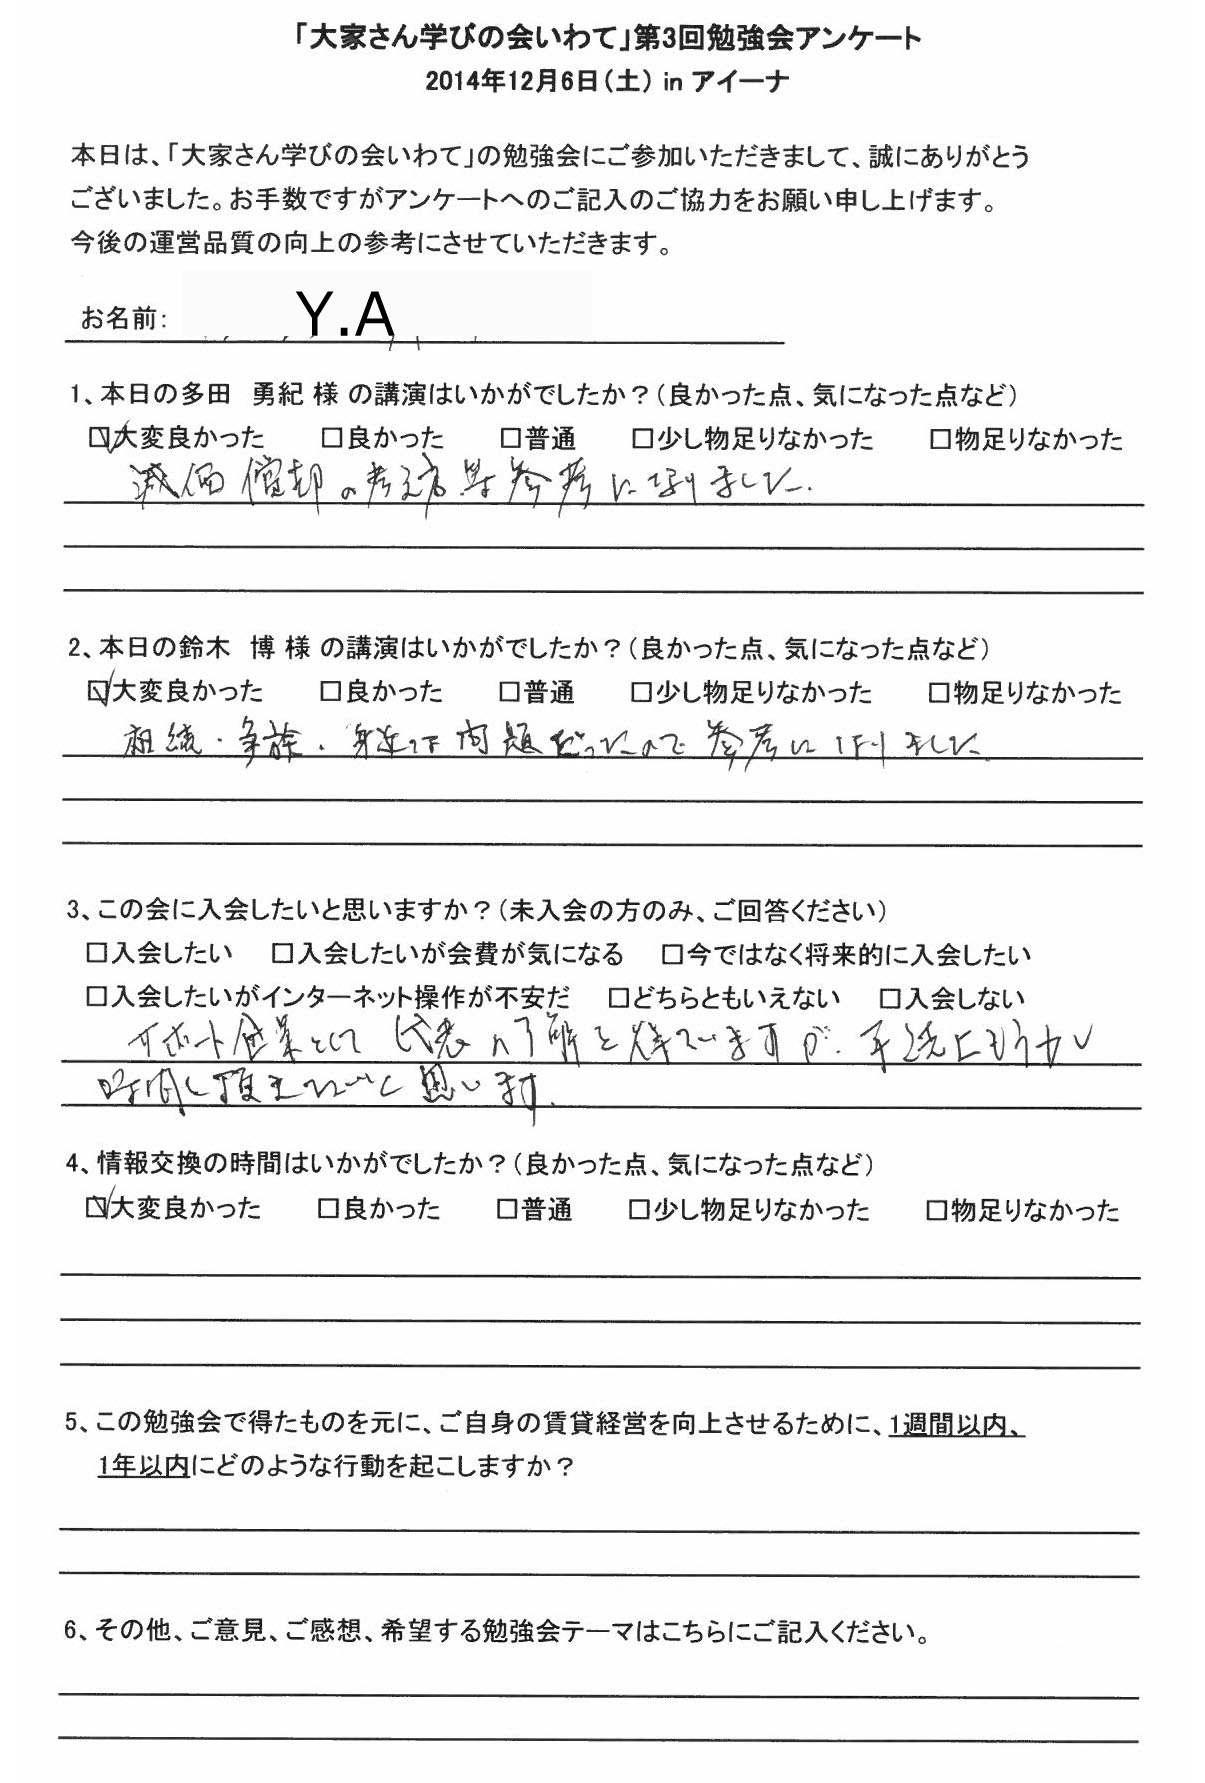 「大家さん学びの会いわて」第3回勉強会アンケート
2014年12月6日(土) in アイーナ
本日は、「大家さん学びの会いわて」の勉強会にご参加いただきまして、誠にありがとう
ございました。お手数ですがアンケートへのご記入のご協力をお願い申し上げます。
今後の運営品質の向上の参考にさせていただきます。
お名前: Y.A
1、本日の多田 勇紀 様 の講演はいかがでしたか?(良かった点、気になった点など)
☑大変良かった □良かった □普通 □少し物足りなかった □物足りなかった
減価償却の考え方等参考になりました.
2、本日の鈴木 博 様 の講演はいかがでしたか?(良かった点、気になった点など)
☑大変良かった □良かった □普通 □少し物足りなかった □物足りなかった
相続・争族・身近な問題だったので参考になりました
3、この会に入会したいと思いますか?(未入会の方のみ、ご回答ください)
□入会したい □入会したいが会費が気になる □今ではなく将来的に入会したい
□入会したいがインターネット操作が不安だ □どちらともいえない □入会しない
サポート企業として代表の了解を得ていますが、手続上もう少し
時間を頂きたいと思います.
4、情報交換の時間はいかがでしたか?(良かった点、気になった点など)
☑大変良かった □良かった □普通 □少し物足りなかった □物足りなかった
5、この勉強会で得たものを元に、ご自身の賃貸経営を向上させるために、1週間以内、
1年以内にどのような行動を起こしますか?
6、その他、ご意見、ご感想、希望する勉強会テーマはこちらにご記入ください。